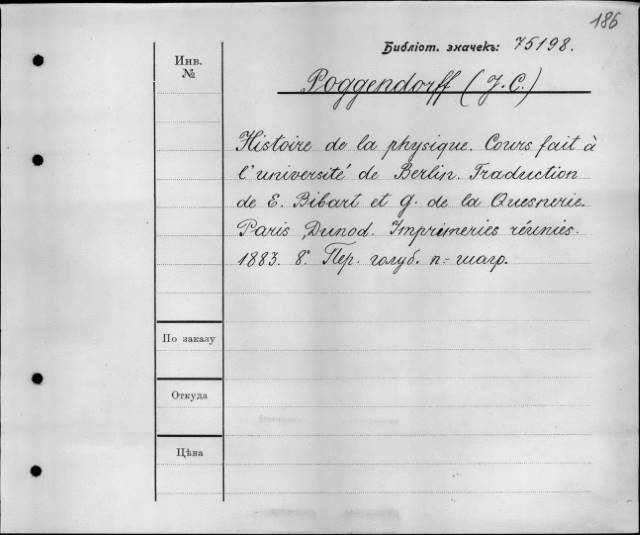 186
Библіот. значекъ: 75198.
Инв.
№
Poggendorff (J. C.)
Histoire de la physique. Cours fait à
l'université de Berlin. Traduction
de E. Bibart et G. de la Quesnerie.
Paris, Dunod. Imprimeries réunies.
1883. 8°. Пер. голуб. п.-шагр.
По заказу
Откуда
Цѣна